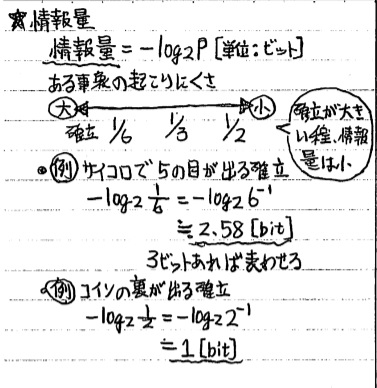 ☆情報量
情報量=-log2P [単位:ビット]
ある事象の起こりにくさ
大 ↔ 小
確立 1/6 1/3 1/2
確立が大き
い程、情報
量は小
・例 サイコロで5の目が出る確立
-log2 1/6 = -log2 6⁻¹
≒ 2.58 [bit]
3ビットあれば表わせる
・例 コインの裏が出る確立
-log2 1/2 = -log2 2⁻¹
= 1 [bit]